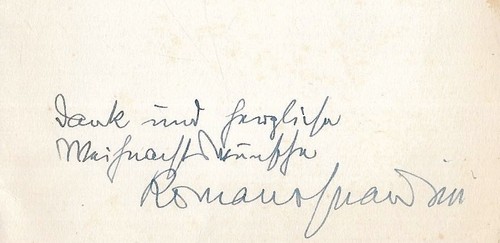 Dank und herzliche
Weihnachtswünsche
Romano Guardini